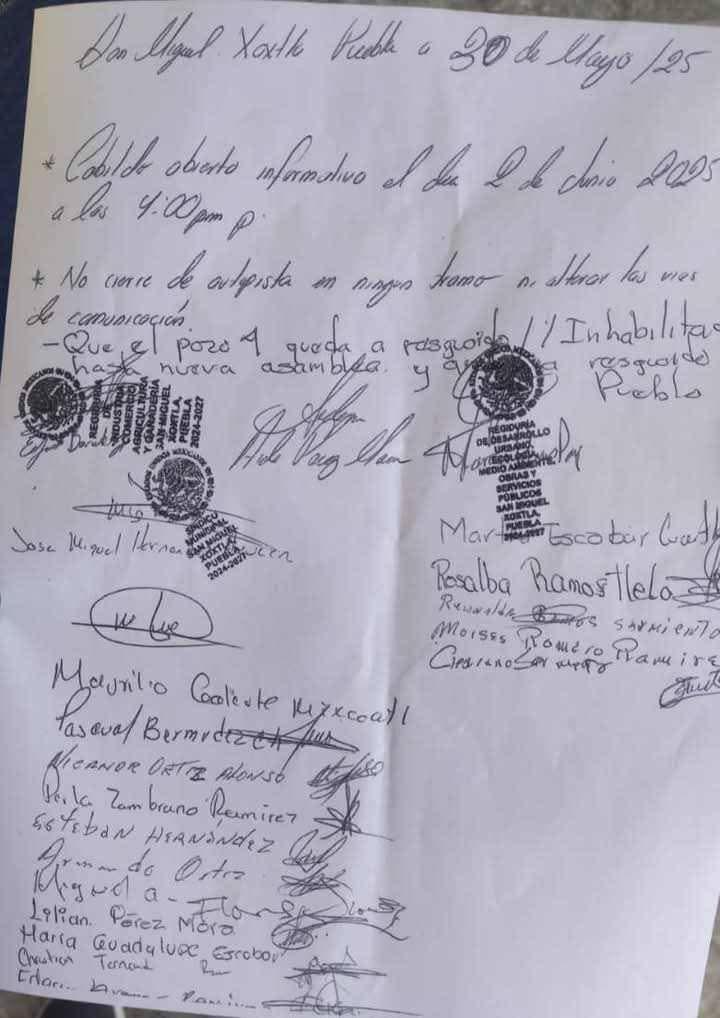 San Miguel Xoxtla Puebla a 30 de Mayo /25
* Cabildo abierto informativo el día 2 de Junio 2025
a las 4:00 pm p.
* No cierre de autopista en ningun tramo ni alterar las vias
de comunicación
- Que el pozo 4 queda a resguardo // Inhabilitad
hasta nueva asamblea. y a resguardo
Pueblo
ESTADOS UNIDOS MEXICANOS
REGIDURIA
DE
INDUSTRIA
COMERCIO
AGRICULTURA
Y GANADERÍA
SAN MIGUEL
XOXTLA,
PUEBLA
2024-2027
REGIDURÍA
DE DESARROLLO
URBANO,
ECOLOGÍA,
MEDIO AMBIENTE,
OBRAS Y
SERVICIOS
PÚBLICOS
SAN MIGUEL
XOXTLA,
PUEBLA
2024-2027
UNIDOS MEXICANOS
SINDICATURA
MUNICIPAL
SAN MIGUEL
XOXTLA,
PUEBLA
2024-2027
Jose Miguel
Escobar
Rosalba Ramos Tlelo
Sarmiento
Moises Romero Ramire
Cipriano
Maurilio Coaliente
Pascual Bermudez
NICANOR ORTIZ ALONSO
Perla Zambrano Ramirez
Esteban HERNÁNDEZ
Armando Ortiz
Miguel a-
Lilian Pérez Mora
Maria Guadalupe Escobar
Christian